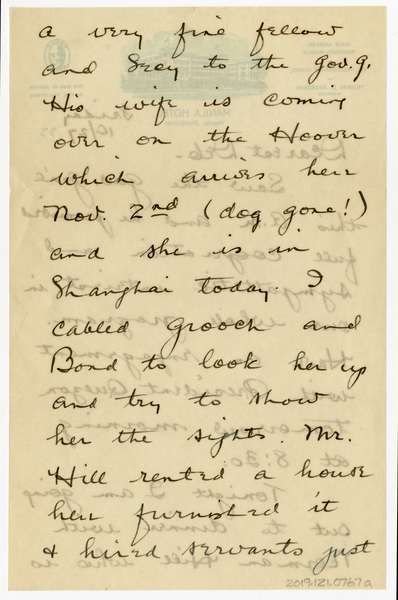 a very fine fellow
and Secy to the Gov. G.
His wife is coming
over on the Hoover
which arrives here
Nov. 2nd (dog gone!)
and she is in
Shanghai today. I
cabled Grooch and
Bond to look her up
and try to show
her the sights. Mr.
Hill rented a house
here furnished it
& hired servants just
2019.121.0767a